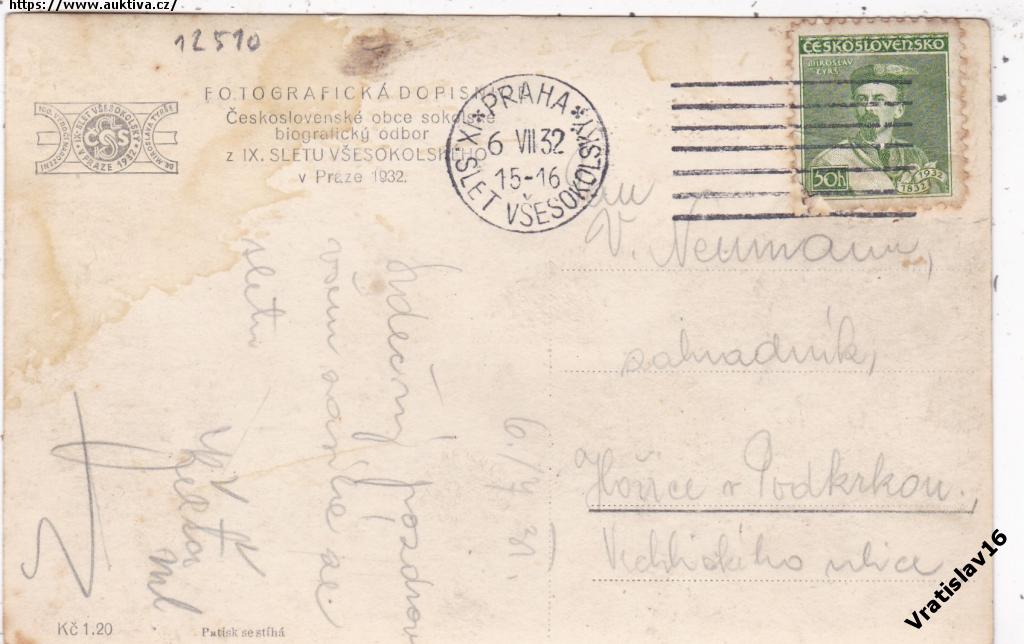 https://www.auktiva.cz/
12510
FOTOGRAFICKÁ DOPISNICE
Československé obce sokolské
biografický odbor
z IX. SLETU VŠESOKOLSKÉHO
v Praze 1932.
ČSS
V PRAZE 1932
PRAHA
6 VII 32
15-16
IX. SLET VŠESOKOLSKÝ
ČESKOSLOVENSKO
MIROSLAV
TYRŠ
50h
1832 1932
Pan
V. Neumann,
zahradník,
Hořice v Podkrkon.,
ulice
Srdečný pozdrav
všem
sletu
ml.
Kč 1.20
Patisk se stíhá
Vratislav16